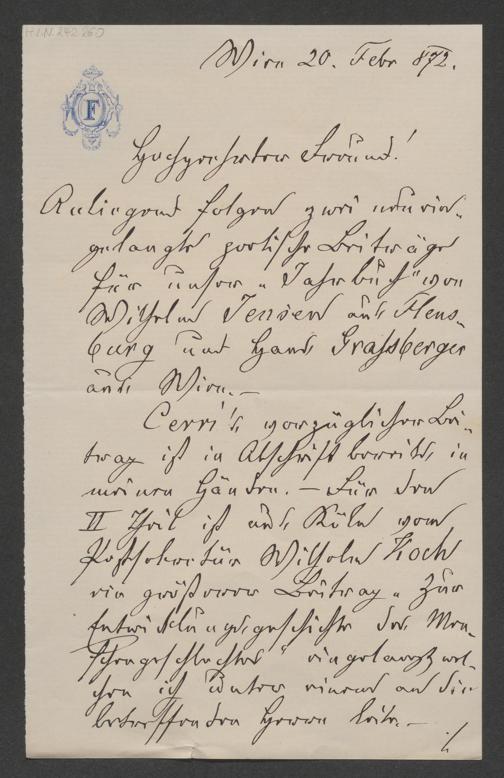 H.I.N. 242 260
Wien 20. Febr 872.
F
Hochgeehrter Freund!
Anliegend folgen zwei neu ein-
gelangte poetische Beiträge
für unser „Jahrbuch" von
Wilhelm Jensen aus Flens-
burg und Hans Graßberger
aus Wien.—
Cerri's vorzüglicher Bei-
trag ist in Abschrift bereits in
meinen Händen. — Für den
II Theil ist aus Köln vom
Postsekretär Wilhelm Koch
ein größerer Beitrag „Zur
Entwicklungsgeschichte des Men-
schengeschlechtes" eingelangt wel-
chen ich unter einem an die
betreffenden Herrn leite.—
./.